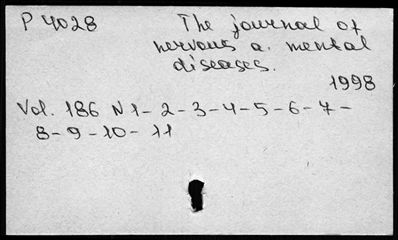 P 4028 The journal of
nervous a. mental
diseases.
1998
Vol. 186 N 1-2-3-4-5-6-7-
8-9-10-11